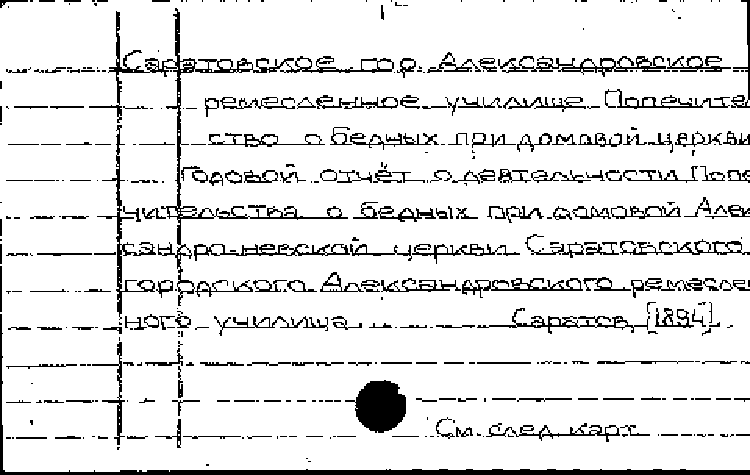 Саратовское гор. Александровское
ремесленное училище Попечитель
ство о бедных при домовой церкви
Годовой отчёт о деятельности Попе
чительства о бедных при домовой Алек
сандро-невской церкви Саратовского
городского Александровского ремеслен
ного училища ... Саратов, [1894].
См. след. карт.